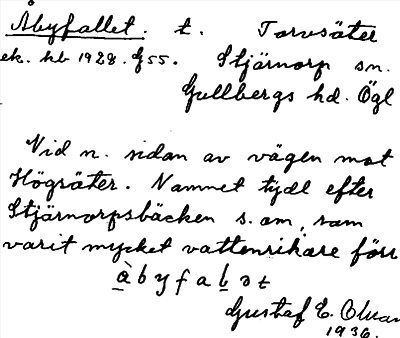 Åbyfallet. t. Torvsäter
ek. kb 1928. G55. Stjärnorp sn.
Gullbergs hd. Ögl
Vid n. sidan av vägen mot
Högsäter. Namnet tydl efter
Stjärnorpsbäcken s. om, som
varit mycket vattenrikare förr
å b y f a l ə t
Gustaf E.
1936.